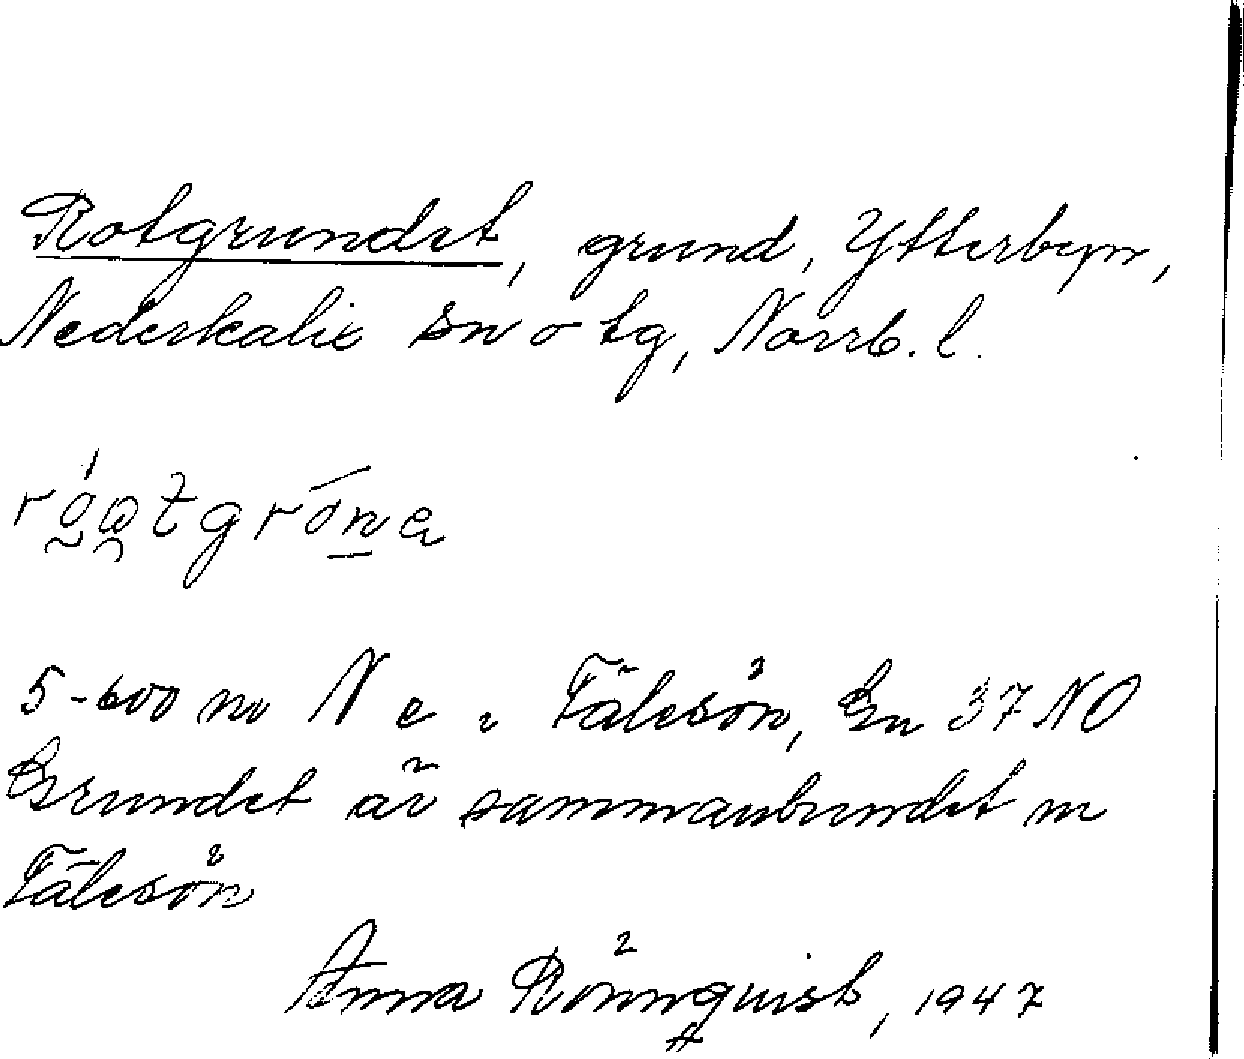 Rotgrundet, grund, Ytterbyn,
Nederkalix sn o tg, Norrb. l.
5-600 m N e. Tälesön, Gn 37 NO
Grundet är sammanbundet m
Tälesön
Anna Rönnquist, 1947